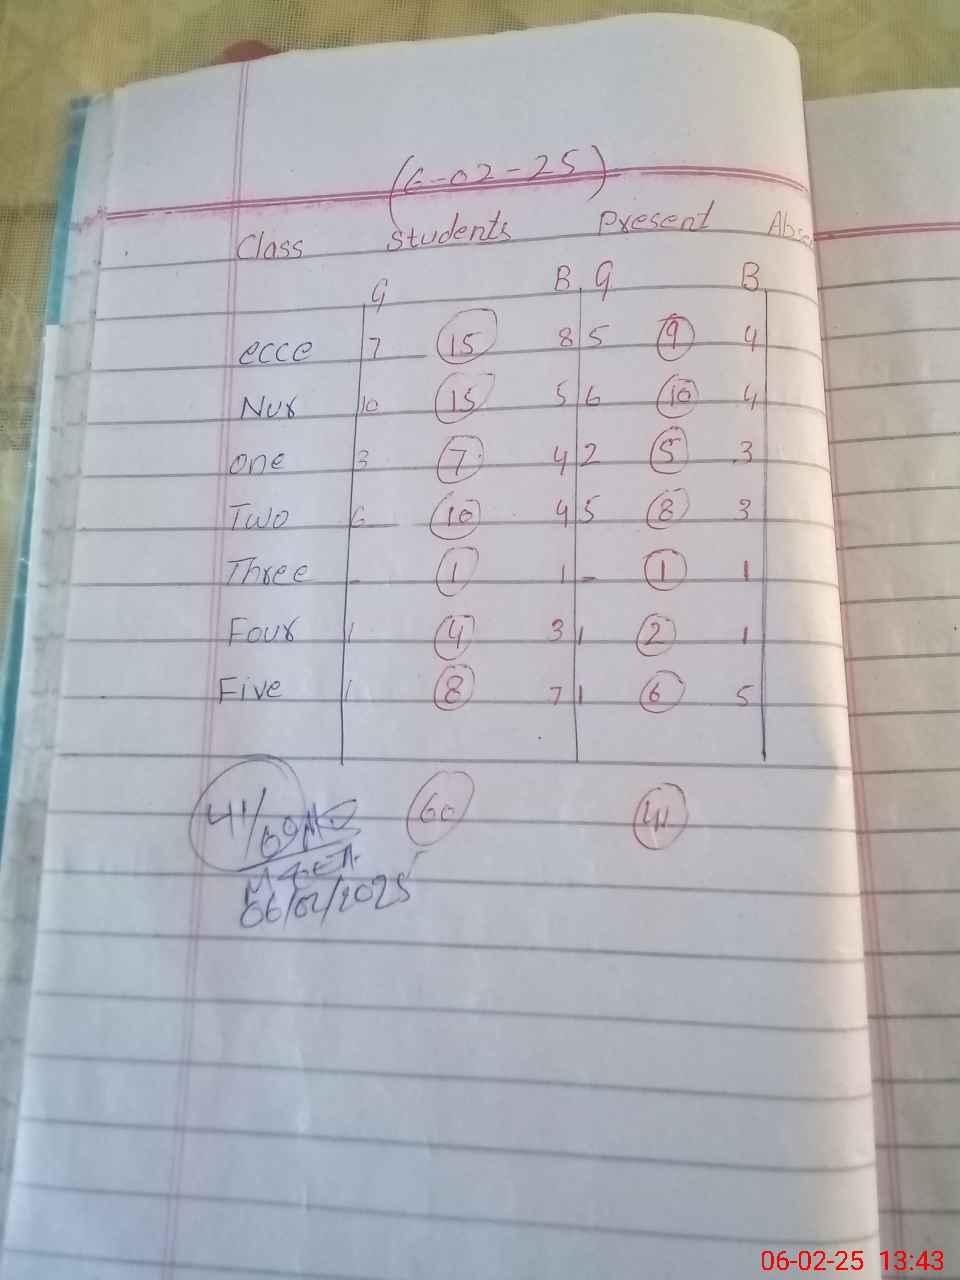 (6-02-25)
Class Students Present Abse
G B G B
ecce 7 15 8 5 9 4
Nur 10 15 5 6 10 4
one 3 7 4 2 5 3
Two 6 10 4 5 8 3
Three - 1 1 - 1 1
Four 1 4 3 1 2 1
Five 1 8 7 1 6 5
60 41
41/60
06/02/2025
06-02-25 13:43